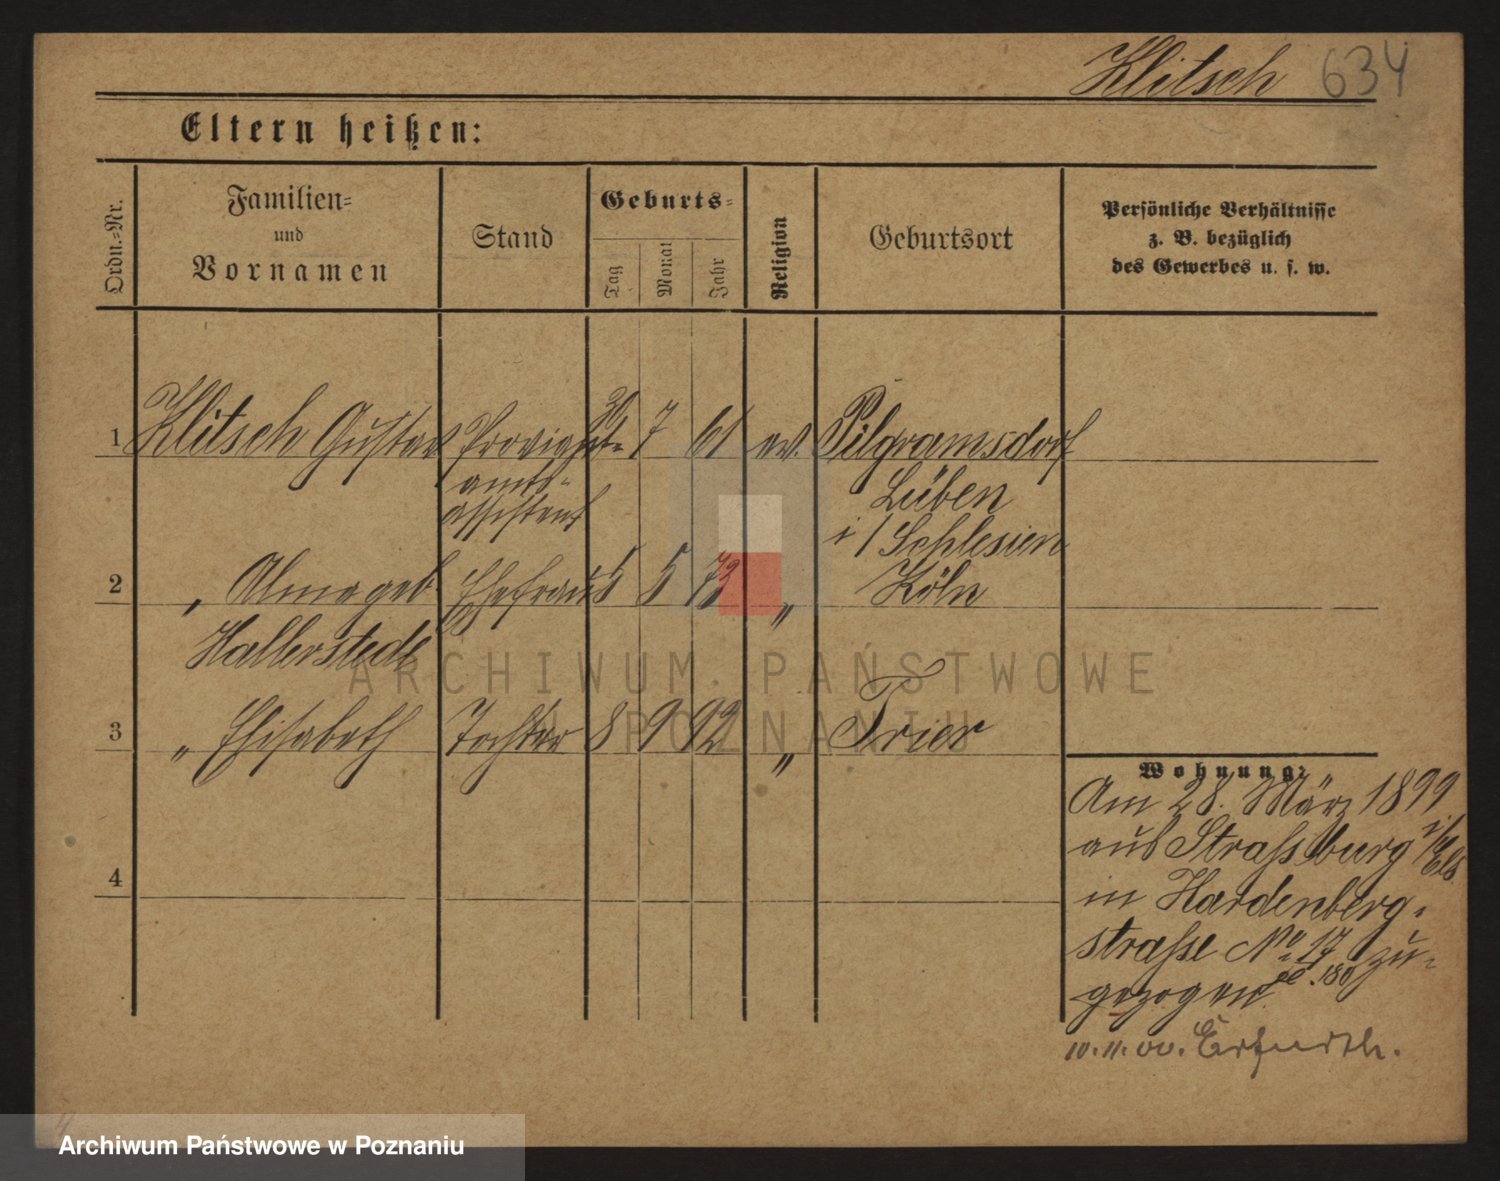 Klitsch 634
Eltern heißen:
Ordn.-Nr.
Familien-
und
Vornamen
Stand
Geburts-
Tag
Monat
Jahr
Religion
Geburtsort
Persönliche Verhältnisse
z. B. bezüglich
des Gewerbes u. s. w.
1 Klitsch Gustav Proviant- 30 7 61 ev. Pilgramsdorf
amts-
assistent
Lüben
i/Schlesien
2 " Alma geb. Ehefrau 5 5 73 " Köln
Hallerstede
3 " Elisabeth Tochter 8 9 92 " Trier
4
Wohnung:
Am 28. März 1899
aus Strassburg i/Els
in Hardenberg-
strasse No 17 zu-
gezogen
10.11.00. Erfurth.
ARCHIWUM PAŃSTWOWE
W POZNANIU
Archiwum Państwowe w Poznaniu